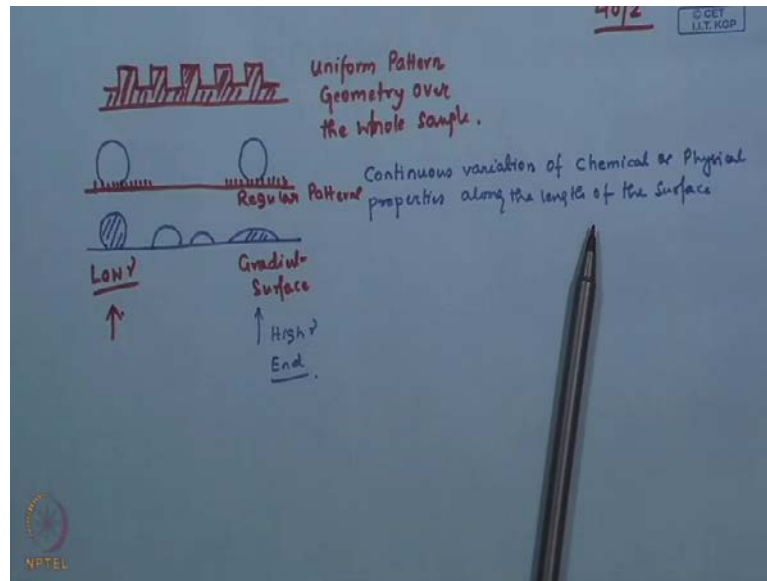 40/2
© CET
I.I.T. KGP
Uniform Pattern
Geometry over
the whole sample.
Regular Pattern
Continuous variation of Chemical or Physical
properties along the length of the Surface
Low γ
Gradient
Surface
High γ
End
NPTEL